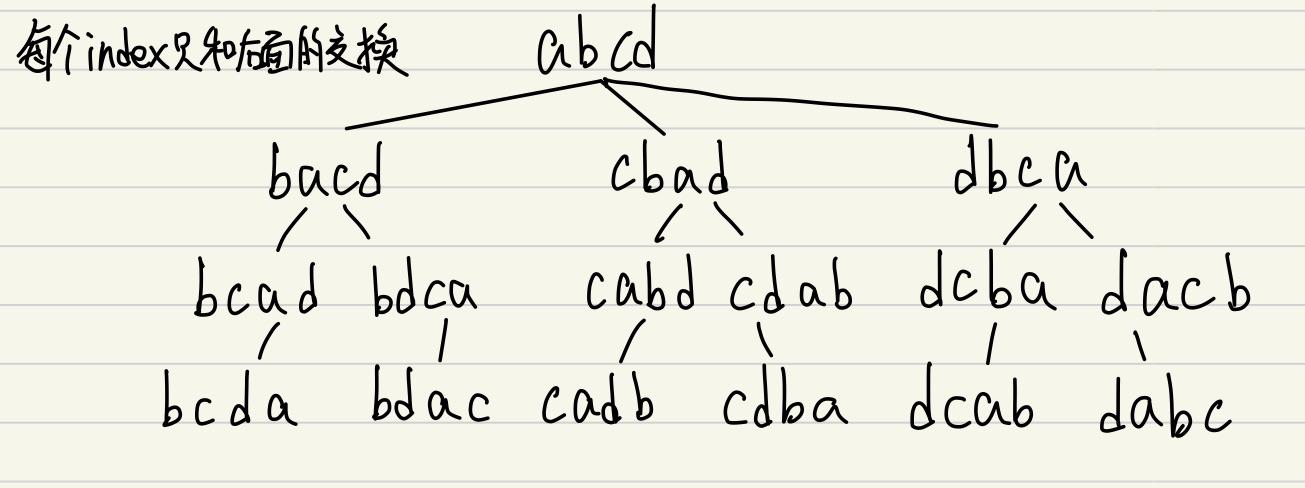 每个index只和后面的交换 abcd
bacd cbad dbca
bcad bdca cabd cdab dcba dacb
bcda bdac cadb cdba dcab dabc